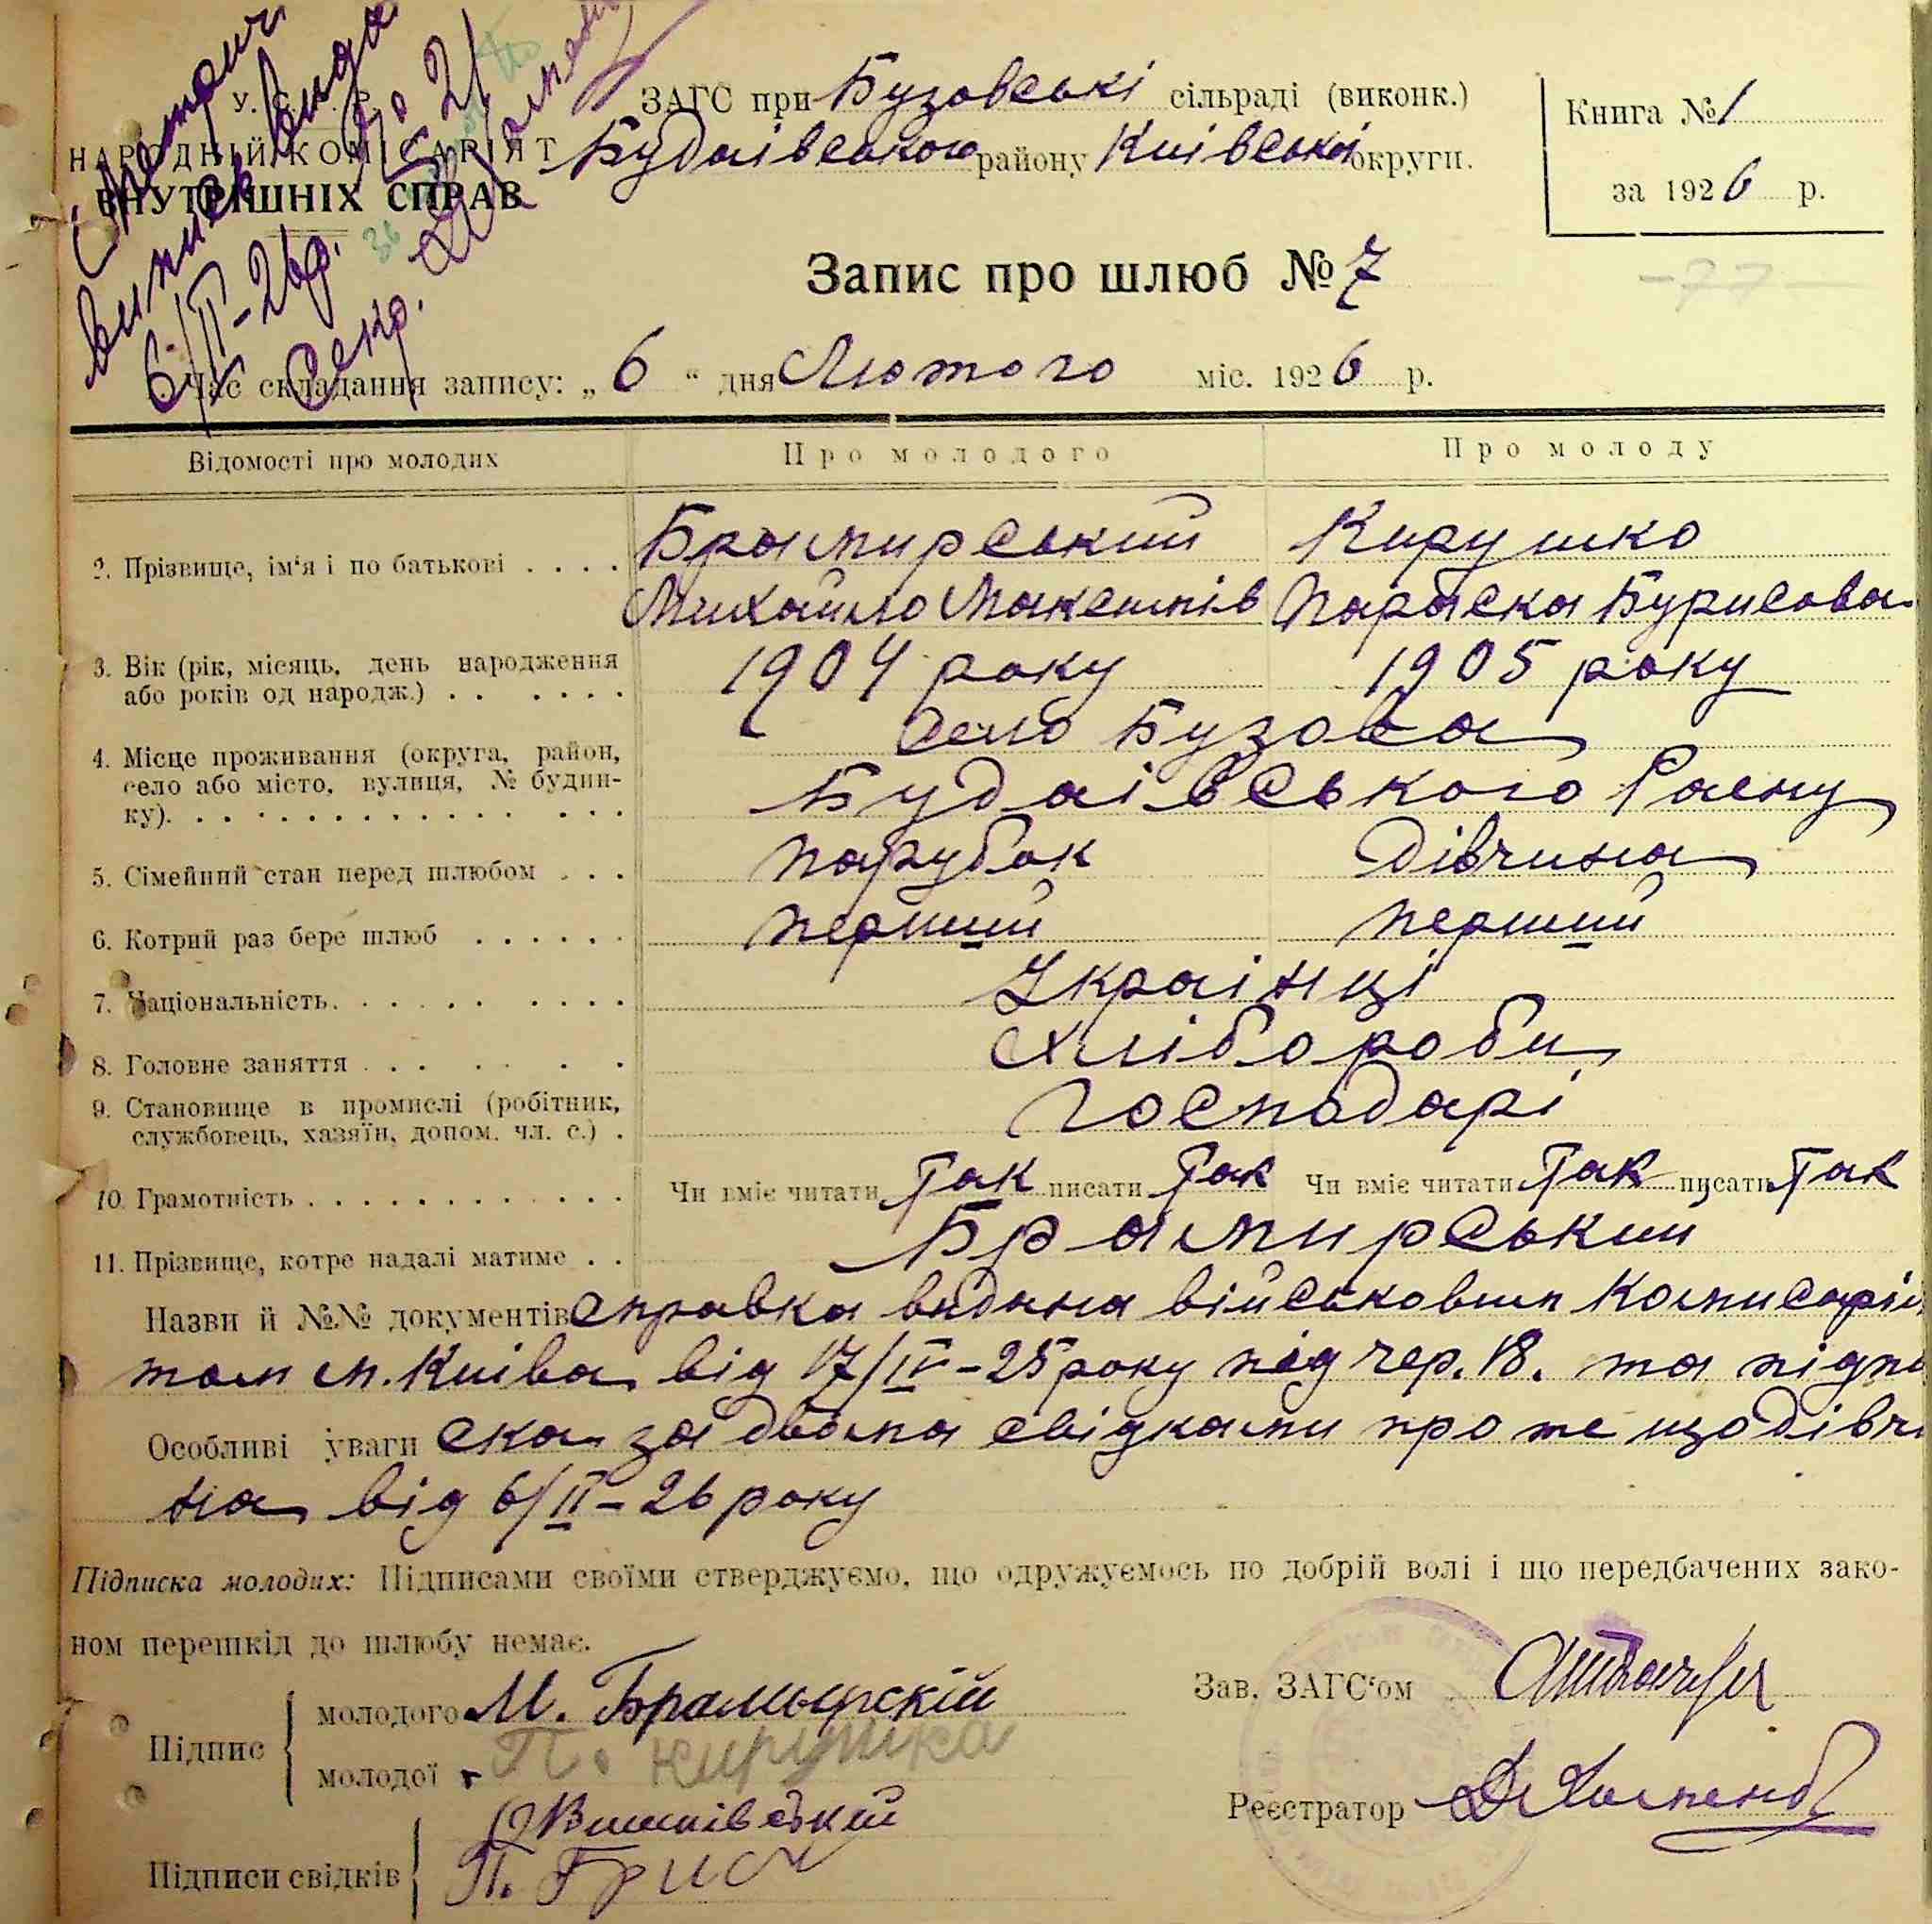 У. С. Р. Р.
НАРОДНІЙ КОМІСАРІЯТ
ВНУТРІШНІХ СПРАВ
виписку
№ 21
6/II-26р.
Секр.
ЗАГС при Бузовські сільраді (виконк.)
Будаівського району Киівської округи.
Книга № 1
за 1926 р.
Запис про шлюб № 7
-77-
Час складання запису: „ 6 “ дня Лютого міс. 1926 р.
Відомості про молодих
Про молодого
Про молоду
2. Прізвище, ім'я і по батькові . . . .
Брамирський
Кирушко
Михайло Максимів
Параска Бурисова
3. Вік (рік, місяць, день народження
або років од народж.) . . . . . .
1904 року
1905 року
4. Місце проживання (округа, район,
село або місто, вулиця, № будин-
ку). . . . . . . . . . . . . . . .
село Бузова
Будаівського Раену
5. Сімейний стан перед шлюбом . . .
парубок
дівчина
6. Котрий раз бере шлюб . . . . . .
перший
перший
7. Національність. . . . . . . . .
Украінці
8. Головне заняття . . . . . . .
Хлібороби
9. Становище в промислі (робітник,
службовець, хазяїн, допом. чл. с.) .
Господарі
10. Грамотність . . . . . . . . . . .
Чи вміє читати так писати так
Чи вміє читати так писати так
11. Прізвище, котре надалі матиме . .
Брамирський
Назви й №№ документів справка видана військовим Комисарія
том м. Киіва від 17/IV-25 року під чер. 18. та підпи
Особливі уваги ска за двома свідками про те що дівчи
на від 6/II-26 року
Підписка молодих: Підписами своїми стверджуємо, що одружуємось по добрій волі і що передбачених зако-
ном перешкід до шлюбу немає.
Підпис
молодого М. Брамырскій
молодої П. кирушка
Підписи свідків
Вишнівський
П. Грись
Зав. ЗАГС'ом
Реєстратор